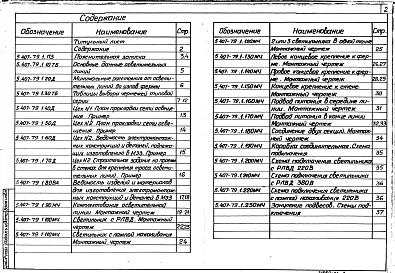 2
Содержание
Обозначение Наименование Стр.
Титульный лист
Содержание 2
5.407-79.1.ПЗ Пояснительная записка 3,4
5.407-79.1.10ТБ Основные данные осветительных
линий
5.407-79.1.20Д Минимальные расстояния от осветительных
линий до
5.407-79.1.30ТБ Таблицы выбора черт. типовой
серии 7
5.407-79.1.40Д Цех №1 План прокладки сети освещения.
Пример 13
5.407-79.1.50Д Цех №2. План прокладки сети освещения.
Пример 14
5.407-79.1.60Д Цех №2. Ведомость электромонтажных
конструкций и деталей, подлежащих
изготовлению в МЭЗ. Пример 15
5.407-79.1.70Д Цех №2 Строительное задание на
осветительных линий. Пример 16
5.407-79.1.80ВМ Ведомость изделий и материалов
для изготовления электромонтажных
конструкций и деталей в МЭЗ 17,18
5.407-79.1.90МЧ Комплектование осветительной
линии. Монтажный чертеж 19 21
5.407-79.1.100МЧ Светильник с РЛВД. Монтажный
чертеж 22,23
5.407-79.1.110МЧ Светильник с лампой накаливания
Монтажный чертеж 24
Обозначение Наименование Стр.
5.407-79.1.120МЧ 2 или 3 светильника в одной точке
Монтажный чертеж 25
5.407-79.1.130МЧ Левое концевое крепление к ферме.
Монтажный чертеж 26,27
5.407-79.1.140МЧ Правое концевое крепление к ферме.
Монтажный чертеж 28,29
5.407-79.1.150МЧ Концевое крепление к стене
Монтажный чертеж 30
5.407-79.1.160МЧ Подвод питания в середине линии.
Монтажный чертеж 31
5.407-79.1.170МЧ Подвод питания в конце линии
Монтажный чертеж 32,33
5.407-79.1.180МЧ Соединение двух секций. Монтажный
чертеж 34
5.407-79.1.190МЧ Коробка соединительная. Схема
подключения 35
5.407-79.1.200МЧ Схема подключения светильника
с РЛВД 220В 35
5.407-79.1.210МЧ Схема подключения светильника
с РЛВД 380В 36
5.407-79.1.220МЧ Схема подключения светильника
с лампой накаливания 220В 36
5.407-79.1.230МЧ Зануление подвесов. Схемы подключения
37